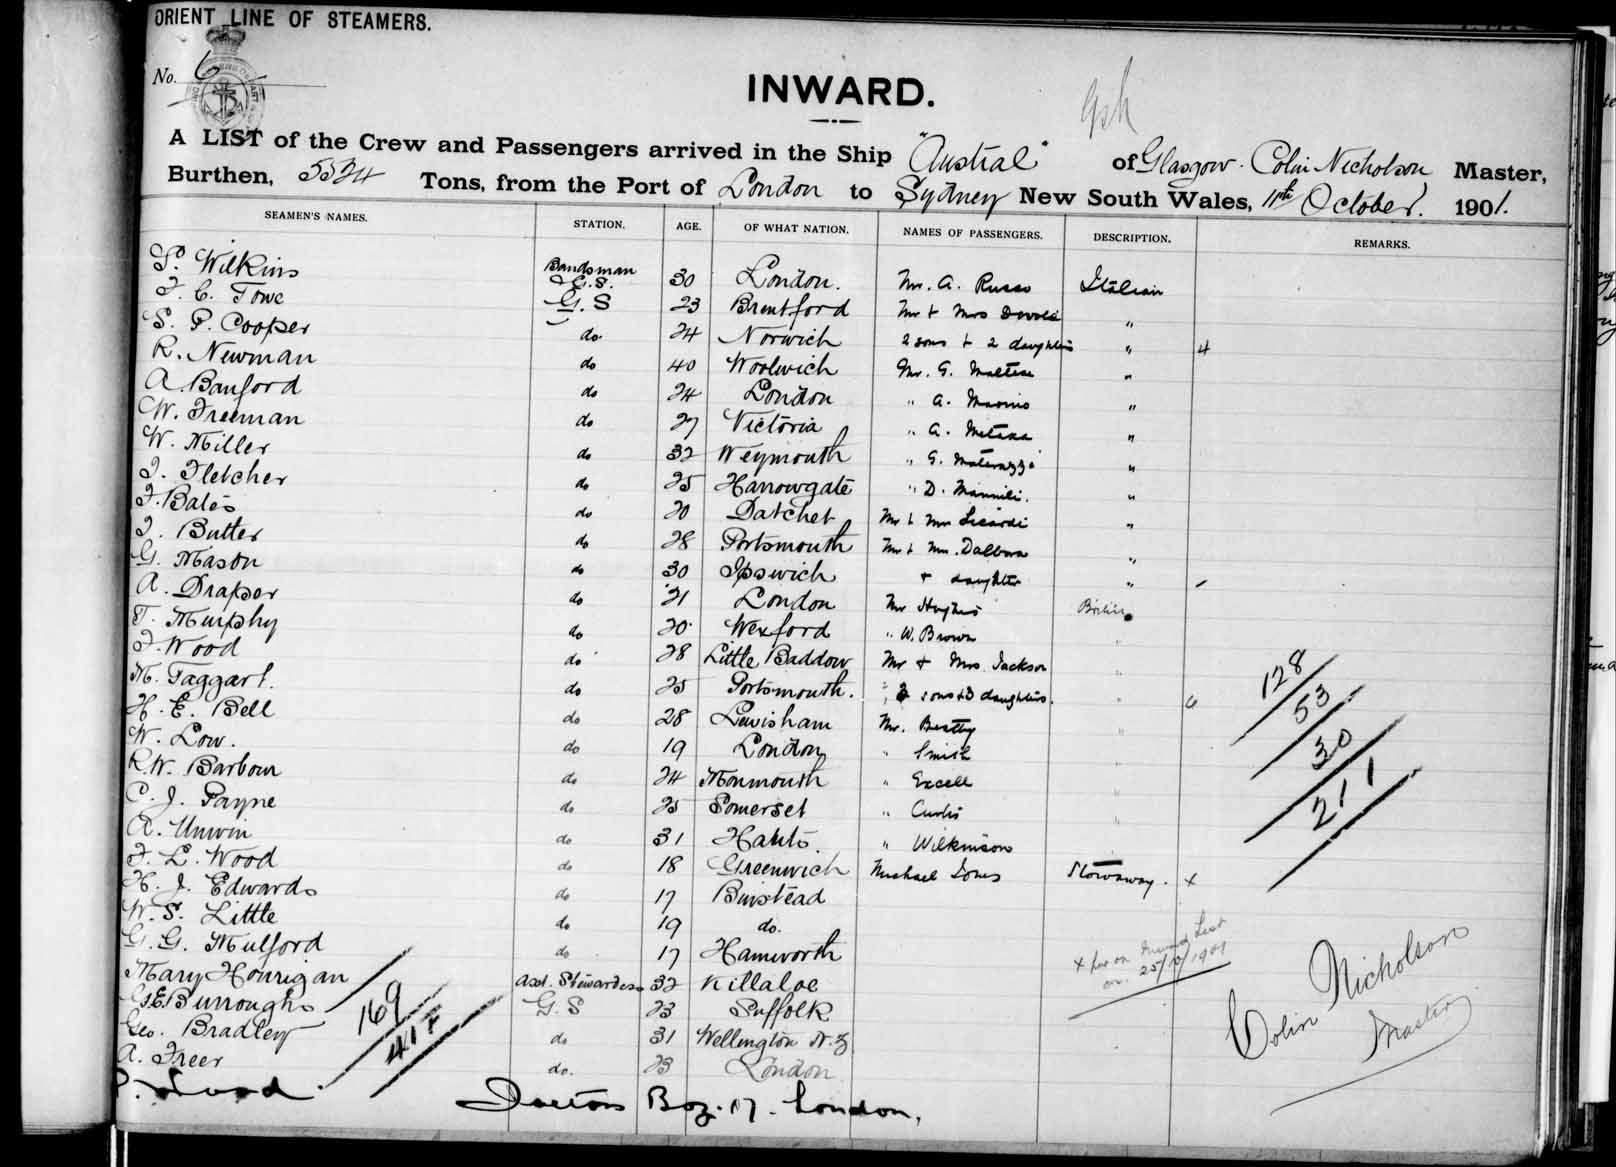 ORIENT LINE OF STEAMERS.
No. 6
INWARD.
A LIST of the Crew and Passengers arrived in the Ship "Austral" of Glasgow. Colin Nicholson Master,
Burthen, 5524 Tons, from the Port of London to Sydney New South Wales, 11th October. 1901.
SEAMEN'S NAMES. STATION. AGE. OF WHAT NATION. NAMES OF PASSENGERS. DESCRIPTION. REMARKS.
P. Wilkins Bandsman & G.S. 30 London. Mr. A. Russo Italian
F. C. Towe G.S 23 Brentford Mr + Mrs "
S. P. Cooper do. 24 Norwich 2 sons + 2 daughters " 4
R. Newman do 40 Woolwich Mr. G. Maltese "
A. Banford do 24 London " A. "
W. Freeman do 27 Victoria " A. "
W. Miller do 32 Weymouth " G. Materazzi "
J. Fletcher do 25 Harrowgate " D. "
F. Bates do 20 Datchet Mr + Mrs Licardi "
J. Butter do 28 Portsmouth Mr + Mrs. "
G. Mason do 30 Ipswich + daughter "
A. Draper do 21 London Mr Hughes British
T. Murphy do 20 Wexford " W. Brown "
F. Wood do 28 Little Baddow Mr + Mrs Jackson "
M. Taggart. do 25 Portsmouth. " 3 sons + 3 daughters. " 6
H. E. Bell do 28 Lewisham Mr. Beatty "
W. Low. do 19 London " Smith "
R.W. Barbour do 24 Monmouth " Excell "
C. J. Payne do 25 Somerset " Curtis "
A. Unwin do 31 Hants. " Wilkinson "
F. L. Wood do 18 Greenwich Michael Jones Stowaway. x
H. J. Edwards do 17 Binstead
W. S. Little do 19 do.
G. G. Mulford do 17 Hamworth
Mary Hourigan asst. Stewardess 32 Killaloe
G.E. Burroughs G.S 23 Suffolk
Geo. Bradley do 31 Wellington N.Z
A. Freer do. 23 London
Wood Doctors Boy. 17. London.
128
53
30
211
169
41
x on List
on 25/10/1901
Colin Nicholson
Master